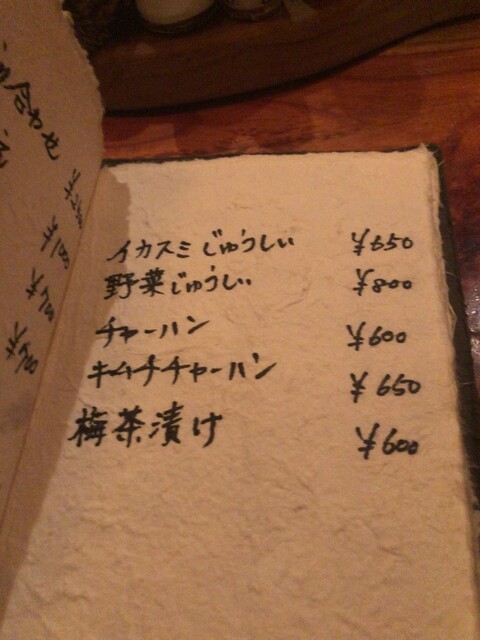 合わせ
イカスミじゅうしい ¥650
野菜じゅうしい ¥800
チャーハン ¥600
キムチチャーハン ¥650
梅茶漬け ¥600